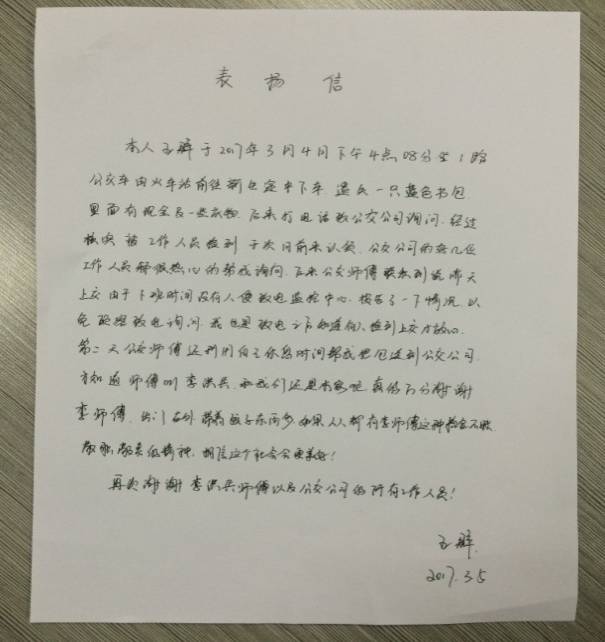 表扬信
本人王辉于2017年3月4日下午4点08分坐1路
公交车由火车站前往新世定半下车，遗失一只蓝色书包
里面有现金及一些衣物，后来打电话致公交公司询问，经过
核实被工作人员捡到于次日前来认领，公交公司的好几位
工作人员都很热心的帮我询问，后来公交师傅联系到说昨天
上交由于下班时间没有人便致电监控中心，报告了一下情况，以
免致电询问，我也是致电了后知道包捡到上交才放心。
第二天公交师傅还利用自己休息时间帮我把包送到公交公司，
方知道师傅叫李洪兵，和我们还是本家呢，真得万分感谢
李师傅，出门在外带着孩子东西多，如果人人都有李师傅这种拾金不昧
敬职敬業的精神，相信这个社会会更美好！
再次谢谢李洪兵师傅以及公交公司的所有工作人员！
2017.3.5